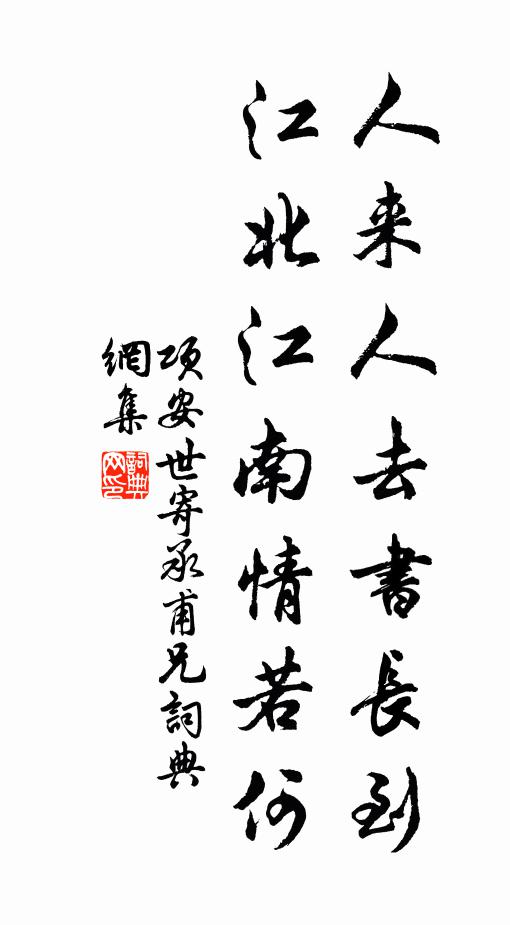 人来人去書長到
江北江南情若何
項安世寄承甫兄詞典
網集
詞典网印